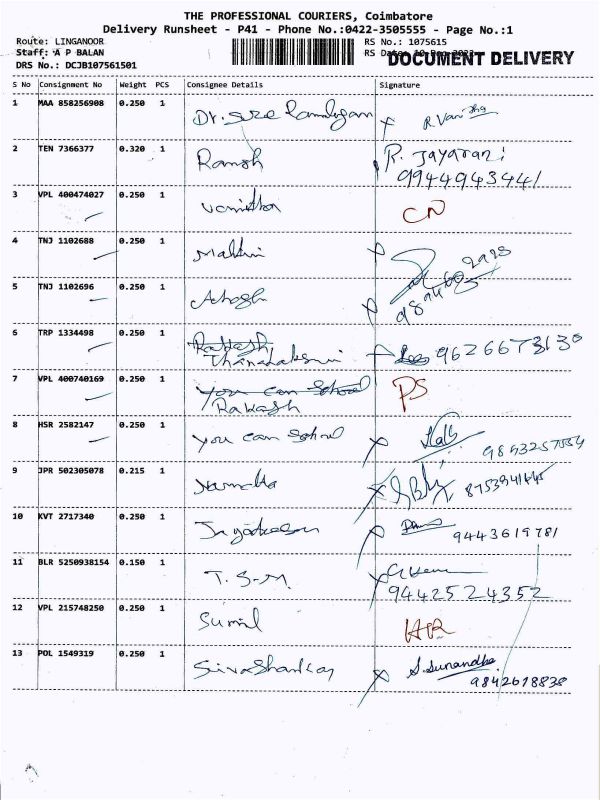 THE PROFESSIONAL COURIERS, Coimbatore
Delivery Runsheet - P41 - Phone No.:0422-3505555 - Page No.:1
Route: LINGANOOR
RS No.: 1075615
Staff: A P BALAN
RS Date: 10 Dec 2022
DOCUMENT DELIVERY
DRS No.: DCJB107561501
S No Consignment No Weight PCS Consignee Details Signature
1 MAA 858256908 0.250 1 Dr. R. Vanitha
2 TEN 7366377 0.320 1 Ramesh R. Jayarani
9944943441
3 VPL 400474027 0.250 1 Vanitha CN
4 TNJ 1102688 0.250 1
5 TNJ 1102696 0.250 1 Ashogh
6 TRP 1334498 0.250 1 Rakesh
Thanalakshmi 9626673130
7 VPL 400740169 0.250 1 you can School PS
Rakash
8 HSR 2582147 0.250 1 you can School
9 JPR 502305078 0.215 1
10 KVT 2717340 0.250 1 9443619781
11 BLR 5250938154 0.150 1 T.S.M.
9442524352
12 VPL 215748250 0.250 1 Sunil HR
13 POL 1549319 0.250 1 Sivashankar S. Sunandha
9842618838